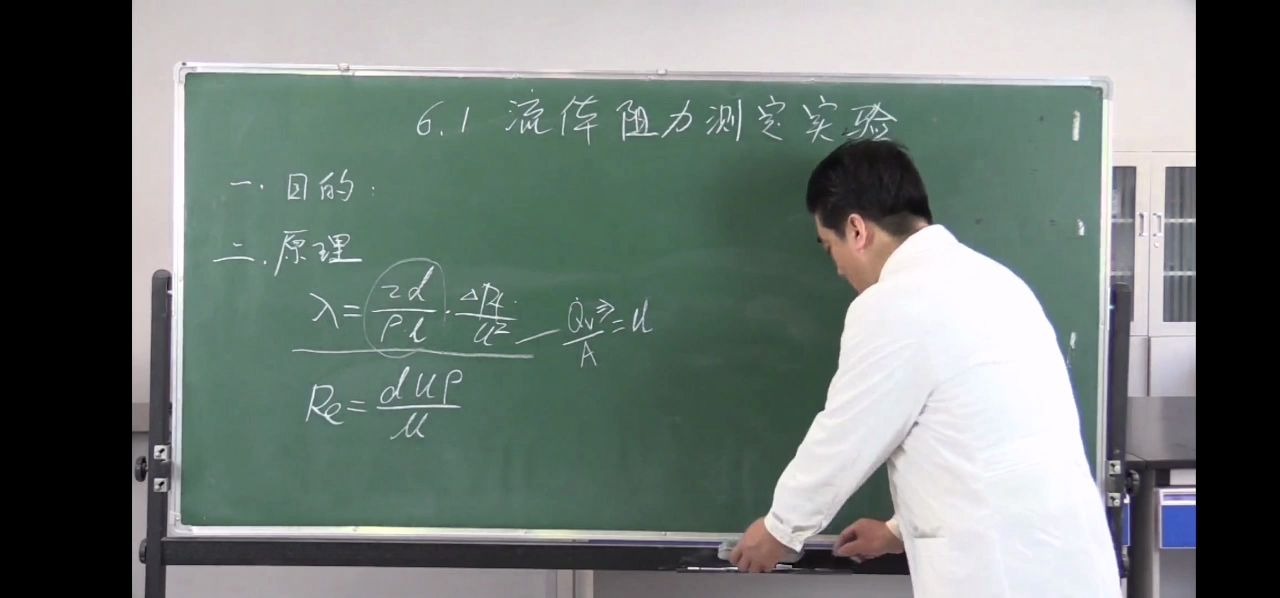 6.1 流体阻力测定实验
一. 目的:
二. 原理
λ = 2d / ρ·l · ΔPf / u² — Qv / A = u
Re = duρ / μ